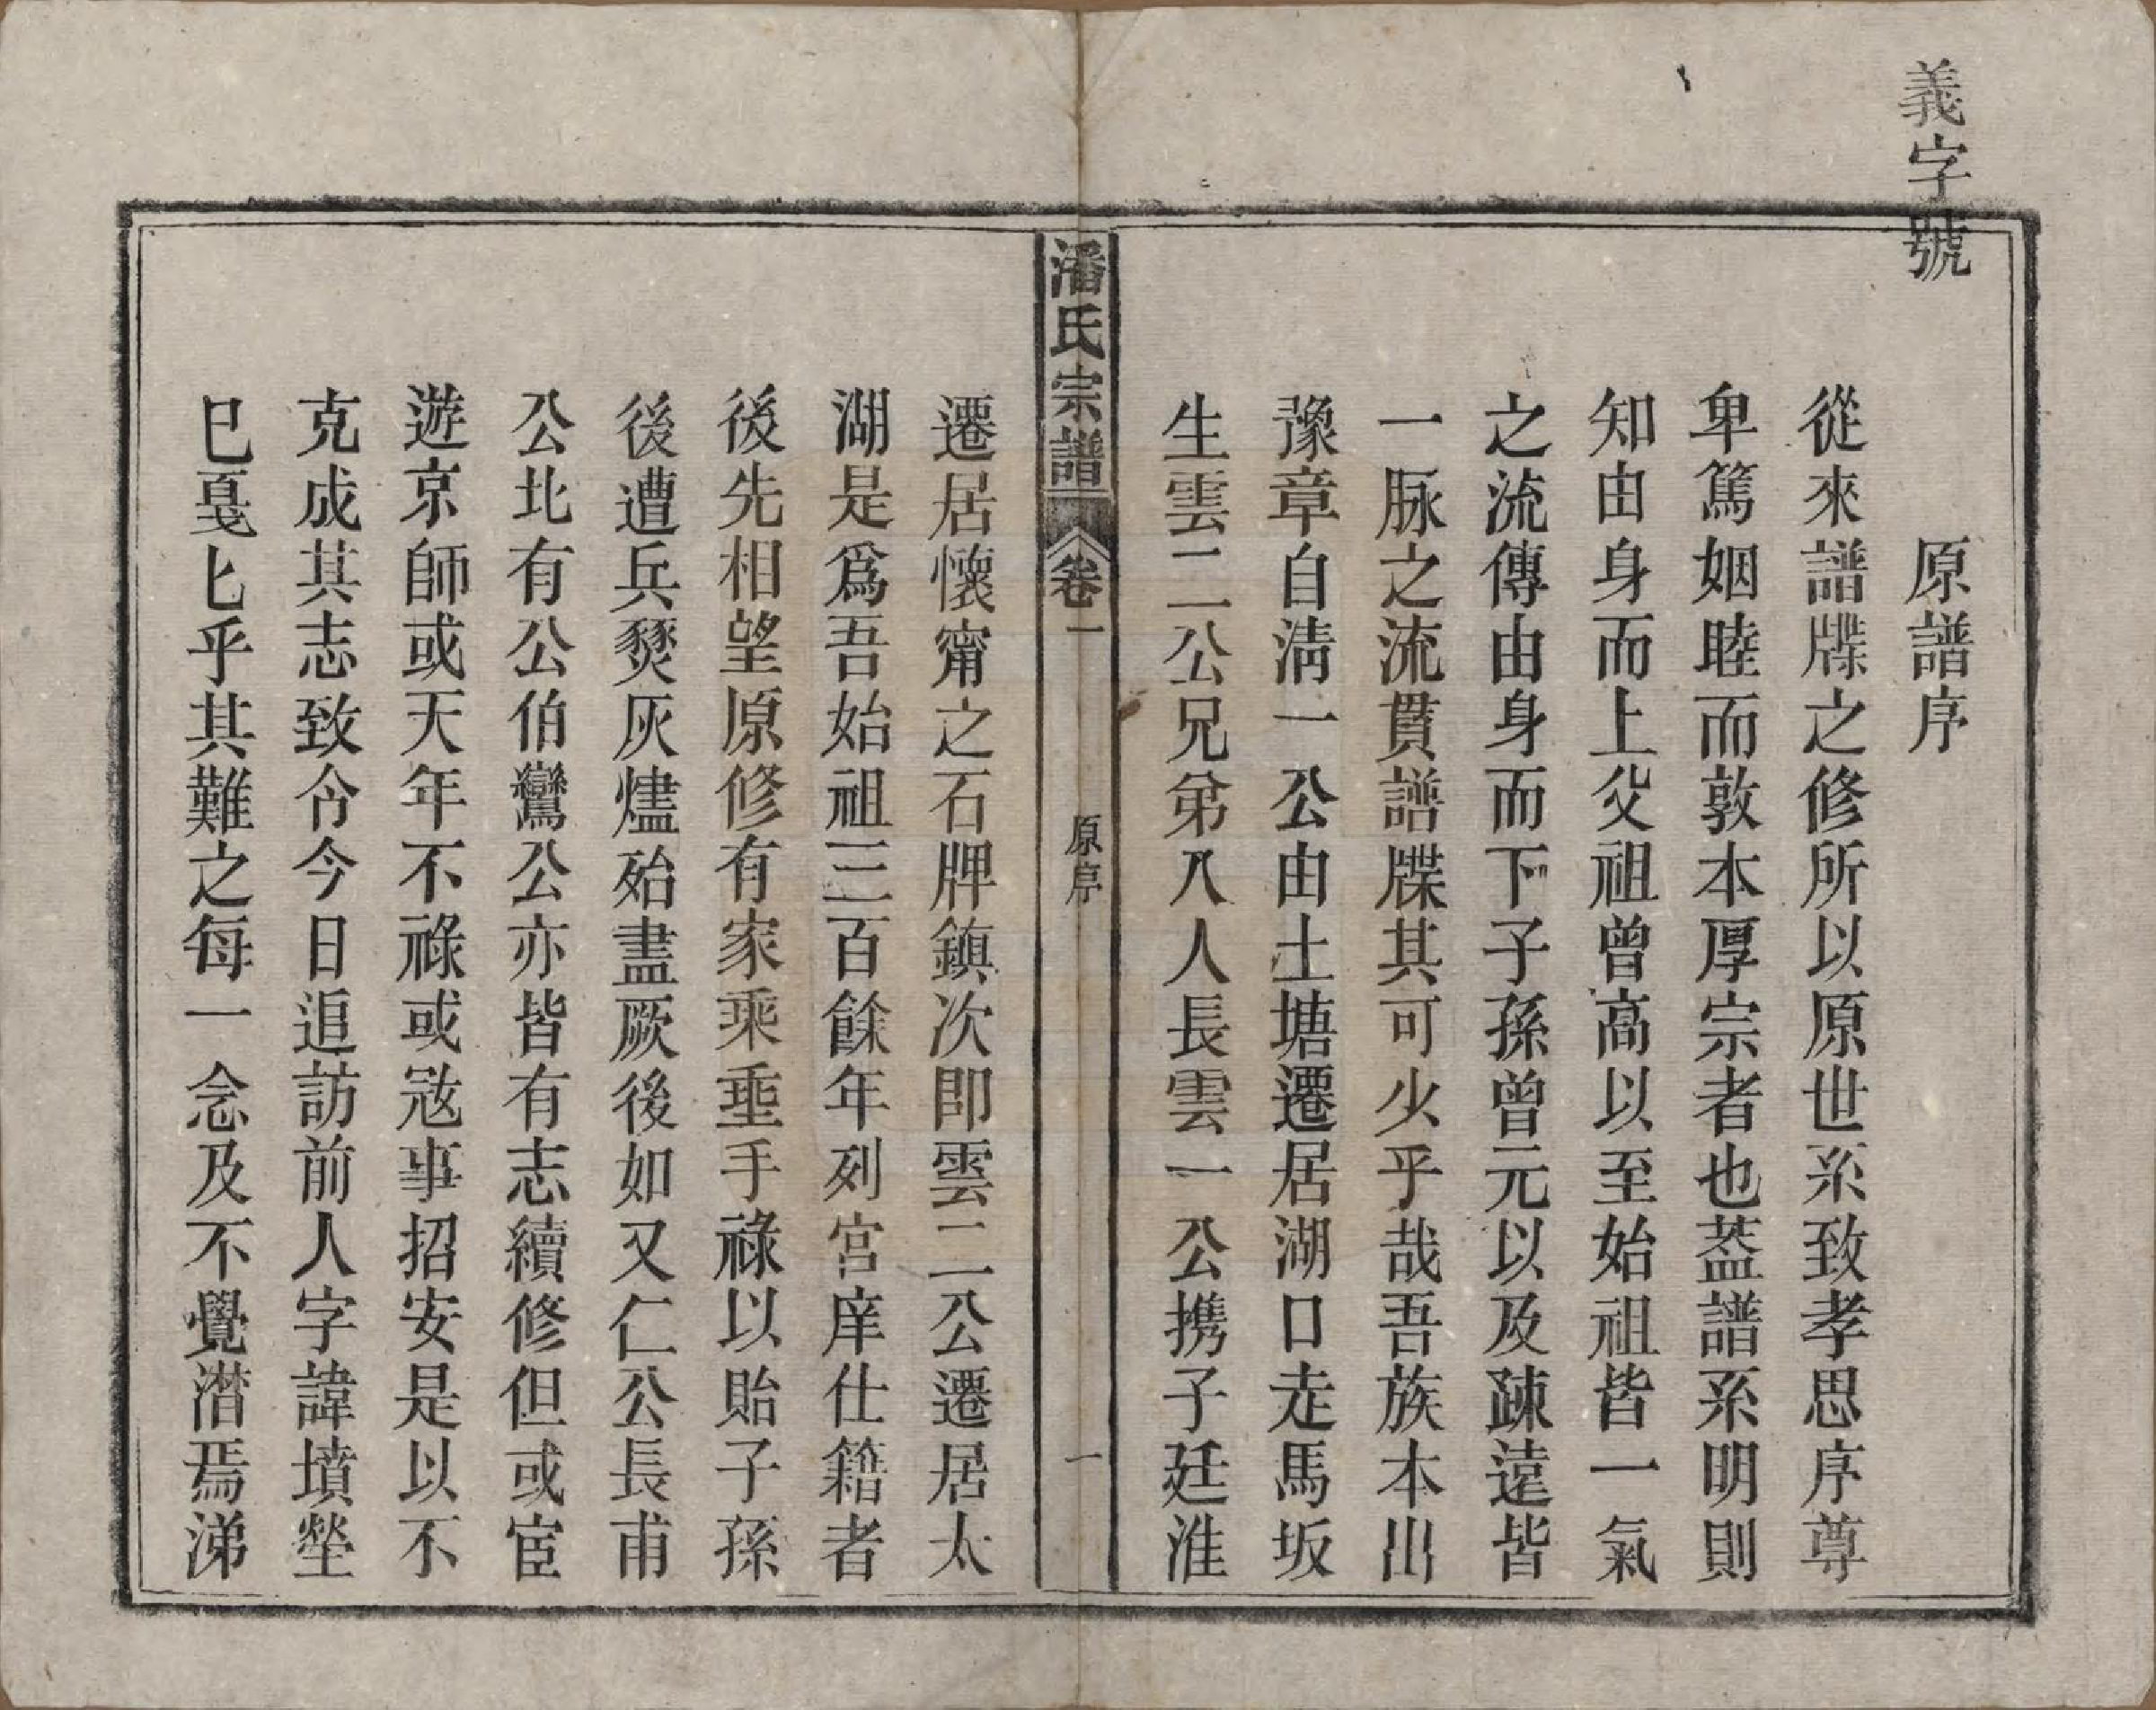 義字號
原譜序
從來譜牒之修所以原世系致孝思序尊
卑篤姻睦而敦本厚宗者也蓋譜系明則
知由身而上父祖曾高以至始祖皆一氣
之流傳由身而下子孫曾元以及疎遠皆
一脉之流貫譜牒其可少乎哉吾族本出
豫章自淸一公由土塘遷居湖口走馬坂
生雲二公兄弟八人長雲一公携子廷淮
潘氏宗譜
卷一
原序
一
遷居懷甯之石牌鎮次卽雲二公遷居太
湖是爲吾始祖三百餘年列宮庠仕籍者
後先相望原修有家乘垂手祿以貽子孫
後遭兵燹灰燼殆盡厥後如又仁公長甫
公北有公伯鸞公亦皆有志續修但或宦
遊京師或天年不祿或寇事招安是以不
克成其志致令今日追訪前人字諱墳塋
已戛匕乎其難之每一念及不覺潸焉涕